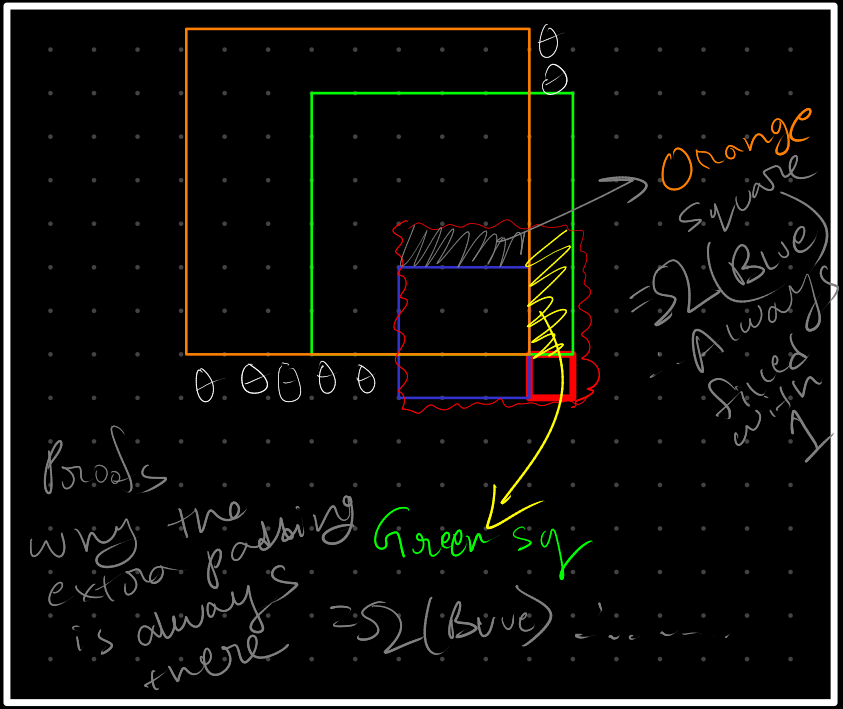 θ
θ
Orange
square
=Ω(Blue)
Always
filled
with
1
θ θ θ θ θ
Proofs
why the
extra padding
is always
there
Green sq
=Ω(Blue) .......